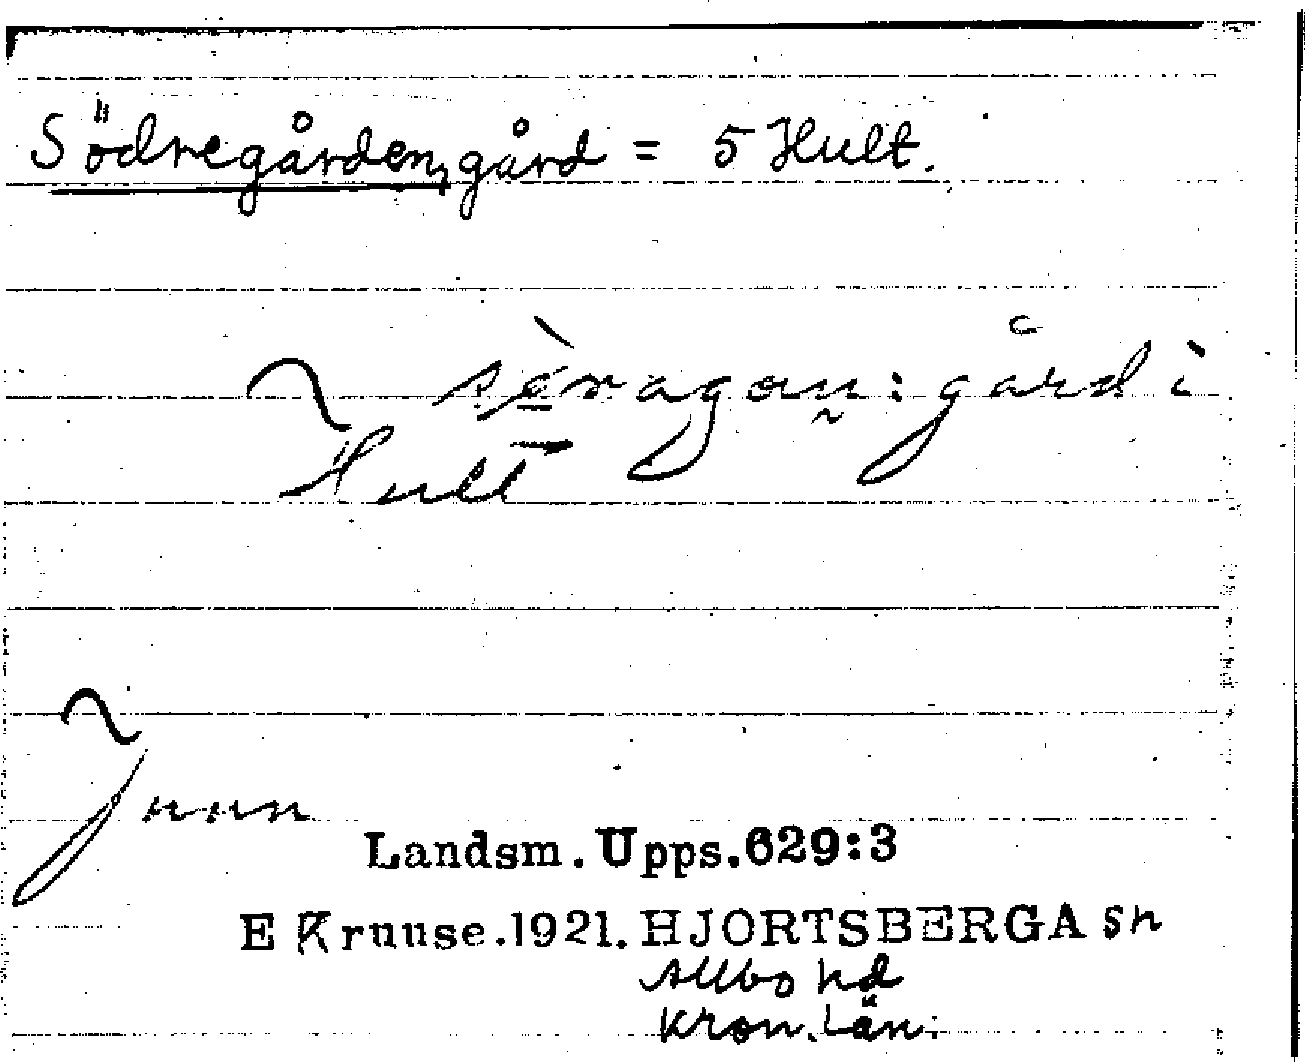 Södregården, gård = 5 Hult.
gård i
Hult
Landsm. Upps. 629:3
E Kruuse. 1921. HJORTSBERGA sn
Allbo hd
Kron. Län.